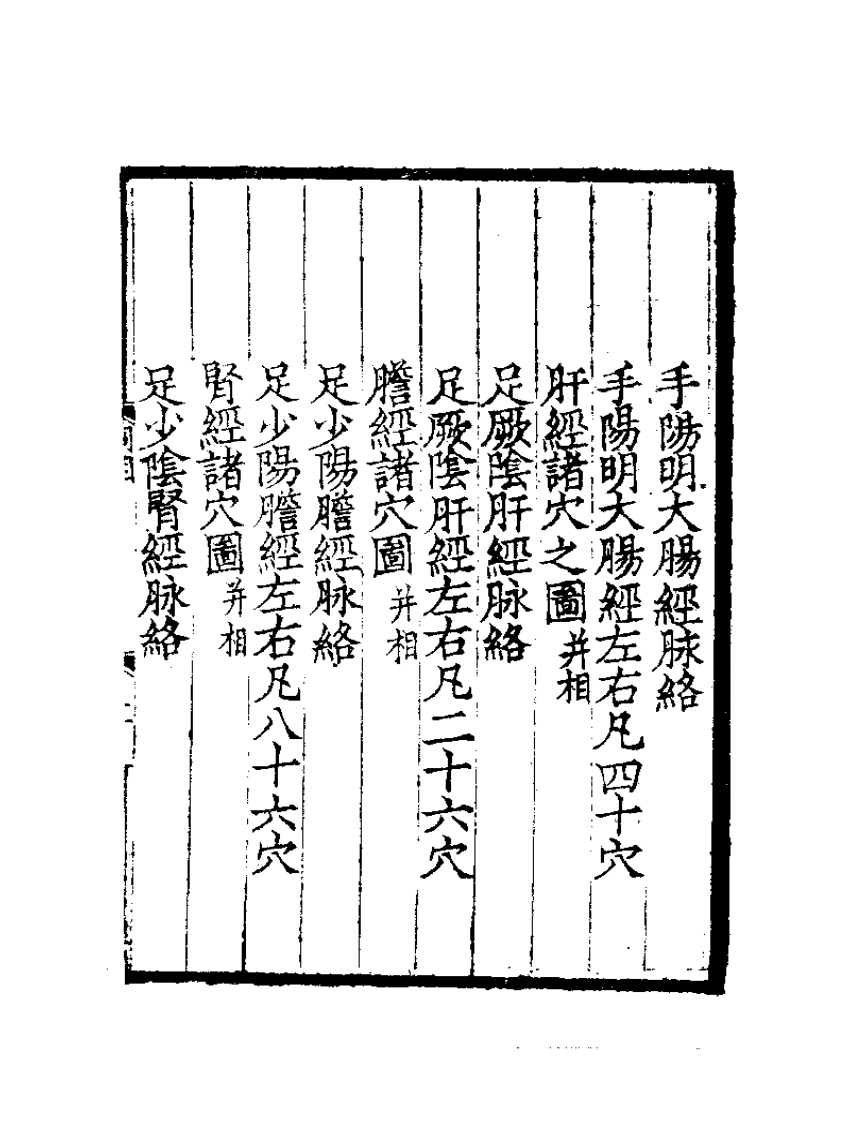 手陽明大腸經脉絡
手陽明大腸經左右凡四十穴
肝經諸穴之圖并相
足厥陰肝經脉絡
足厥陰肝經左右凡二十六穴
膽經諸穴圖并相
足少陽膽經脉絡
足少陽膽經左右凡八十六穴
腎經諸穴圖并相
足少陰腎經脉絡